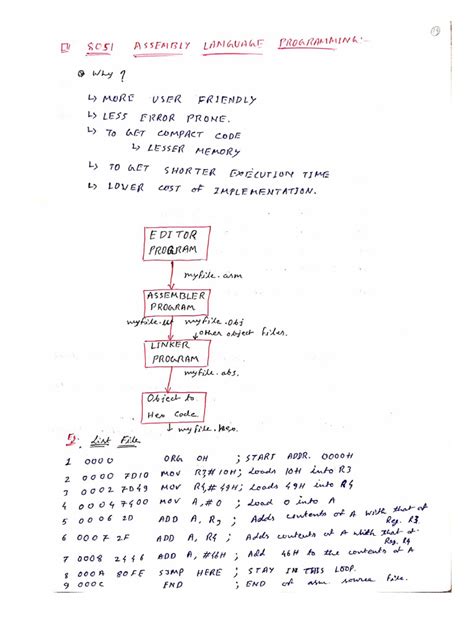 8051 ASSEMBLY LANGUAGE PROGRAMMING:-
Why?
↳ MORE USER FRIENDLY
↳ LESS ERROR PRONE.
↳ TO GET COMPACT CODE
↳ LESSER MEMORY
↳ TO GET SHORTER EXECUTION TIME
↳ LOWER COST OF IMPLEMENTATION.
EDITOR
PROGRAM
myfile.asm
ASSEMBLER
PROGRAM
myfile.lst myfile.obj
other object files.
LINKER
PROGRAM
myfile.abs.
Object to
Hex Code
myfile.Hex.
List File
1 0000 ORG 0H ; START ADDR. 0000H
2 0000 7D10 MOV R3,#10H; Loads 10H into R3
3 0002 7D49 MOV R4,#49H; Loads 49H into R4
4 0004 7400 MOV A,#0 ; Load 0 into A
5 0006 2D ADD A, R3 ; Adds contents of A with that of
Reg. R3.
6 0007 2F ADD A, R4 ; Adds contents of A with that of
Reg. R4
7 0008 2446 ADD A, #46H ; Add 46H to the contents of A
8 000A 80FE SJMP HERE ; STAY IN THIS LOOP.
9 000C END ; END of asm source file.